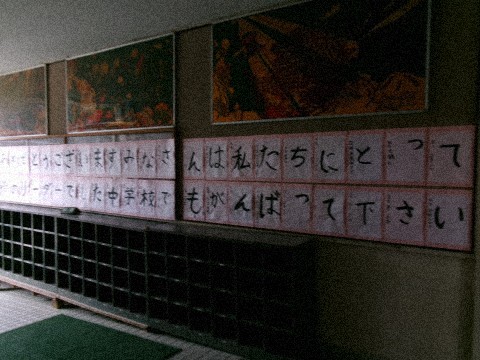 とうございますみなさんは私たちにとって
ーダーでした中学校でもがんばって下さい